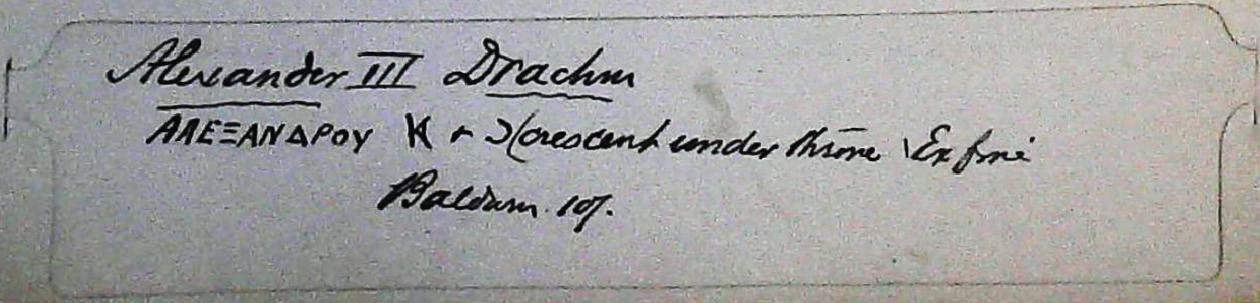 Alexander III Drachm
ΑΛΕΞΑΝΔΡΟΥ K + Ͻ(crescent under throne) Ex fine
Baldwin 10/.